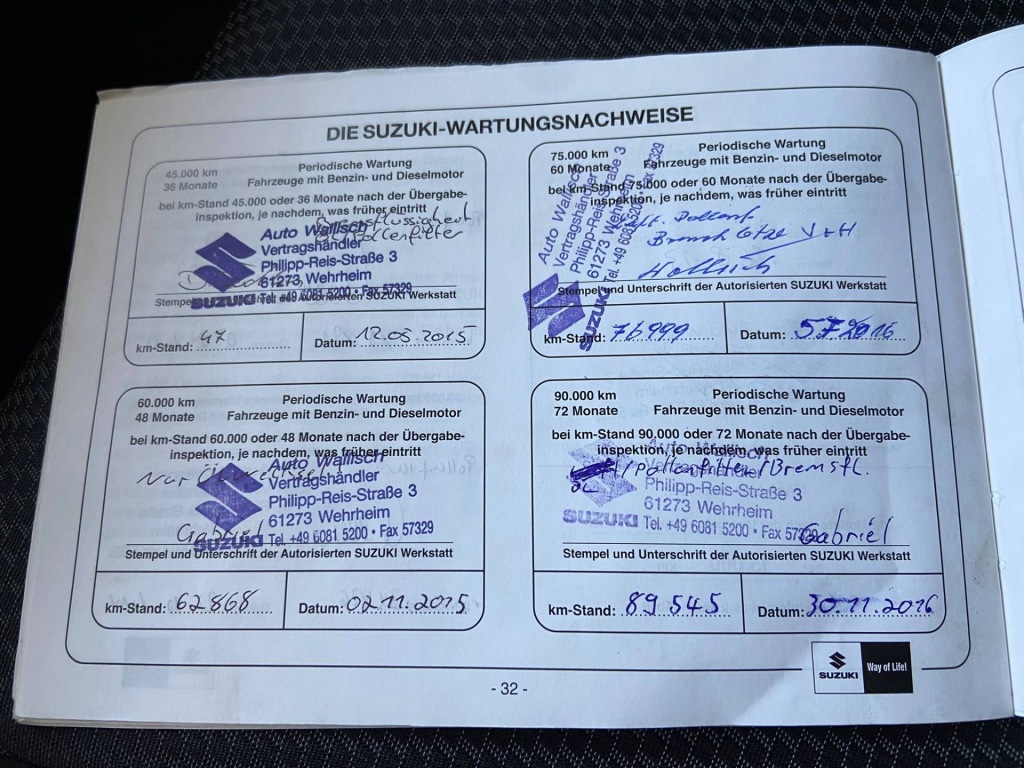 DIE SUZUKI-WARTUNGSNACHWEISE
45.000 km
36 Monate
Periodische Wartung
Fahrzeuge mit Benzin- und Dieselmotor
bei km-Stand 45.000 oder 36 Monate nach der Übergabe-
inspektion, je nachdem, was früher eintritt
Bremsflüssigkeit
Pollenfilter
Auto Wallisch
Vertragshändler
Philipp-Reis-Straße 3
61273 Wehrheim
SUZUKI Tel. +49 6081 5200 • Fax 57329
Stempel und Unterschrift der Autorisierten SUZUKI Werkstatt
km-Stand: 47
Datum: 12.05.2015
60.000 km
48 Monate
Periodische Wartung
Fahrzeuge mit Benzin- und Dieselmotor
bei km-Stand 60.000 oder 48 Monate nach der Übergabe-
inspektion, je nachdem, was früher eintritt
Nur Ölwechsel
Auto Wallisch
Vertragshändler
Philipp-Reis-Straße 3
61273 Wehrheim
Gabriel
SUZUKI Tel. +49 6081 5200 • Fax 57329
Stempel und Unterschrift der Autorisierten SUZUKI Werkstatt
km-Stand: 62868
Datum: 02.11.2015
75.000 km
60 Monate
Periodische Wartung
Fahrzeuge mit Benzin- und Dieselmotor
bei km-Stand 75.000 oder 60 Monate nach der Übergabe-
inspektion, je nachdem, was früher eintritt
Auto Wallisch
Vertragshändler
Philipp-Reis-Straße 3
61273 Wehrheim
SUZUKI Tel. +49 6081 5200 • Fax 57329
V+H
Stempel und Unterschrift der Autorisierten SUZUKI Werkstatt
km-Stand: 76999
Datum: 2016
90.000 km
72 Monate
Periodische Wartung
Fahrzeuge mit Benzin- und Dieselmotor
bei km-Stand 90.000 oder 72 Monate nach der Übergabe-
inspektion, je nachdem, was früher eintritt
ÖL /Pollenfilter/Bremsfl.
Auto Wallisch
Vertragshändler
Philipp-Reis-Straße 3
61273 Wehrheim
SUZUKI Tel. +49 6081 5200 • Fax 57329
Gabriel
Stempel und Unterschrift der Autorisierten SUZUKI Werkstatt
km-Stand: 89545
Datum: 30.11.2016
- 32 -
SUZUKI
Way of Life!